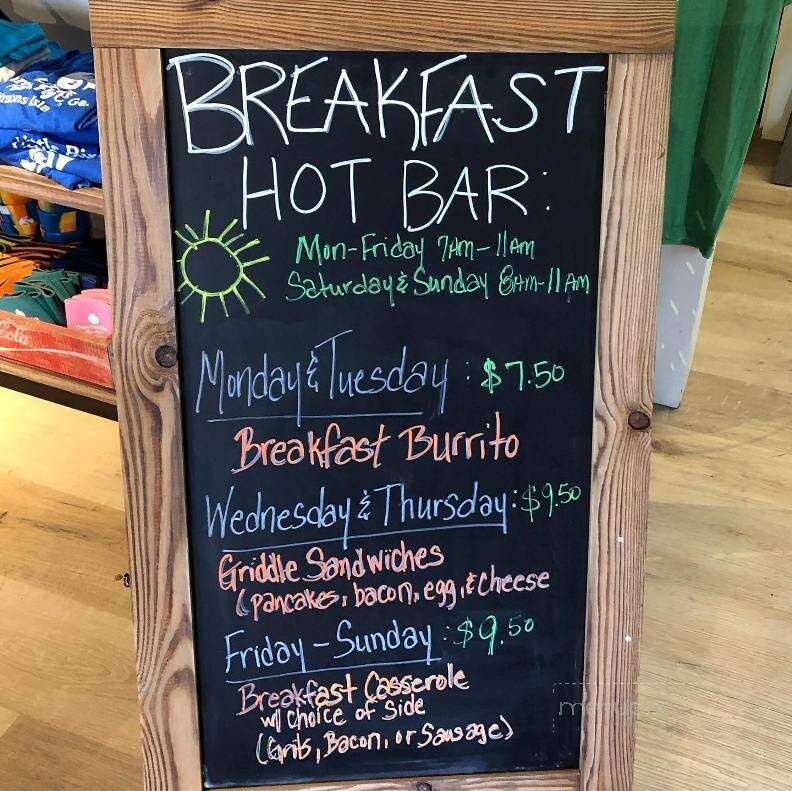 BREAKFAST
HOT BAR:
Mon-Friday 7AM-11AM
Saturday & Sunday 8AM-11AM
Monday & Tuesday: $7.50
Breakfast Burrito
Wednesday & Thursday: $9.50
Griddle Sandwiches
(pancakes, bacon, egg, & cheese
Friday - Sunday: $9.50
Breakfast Casserole
w/ choice of side
(Grits, Bacon, or Sausage)
Cola